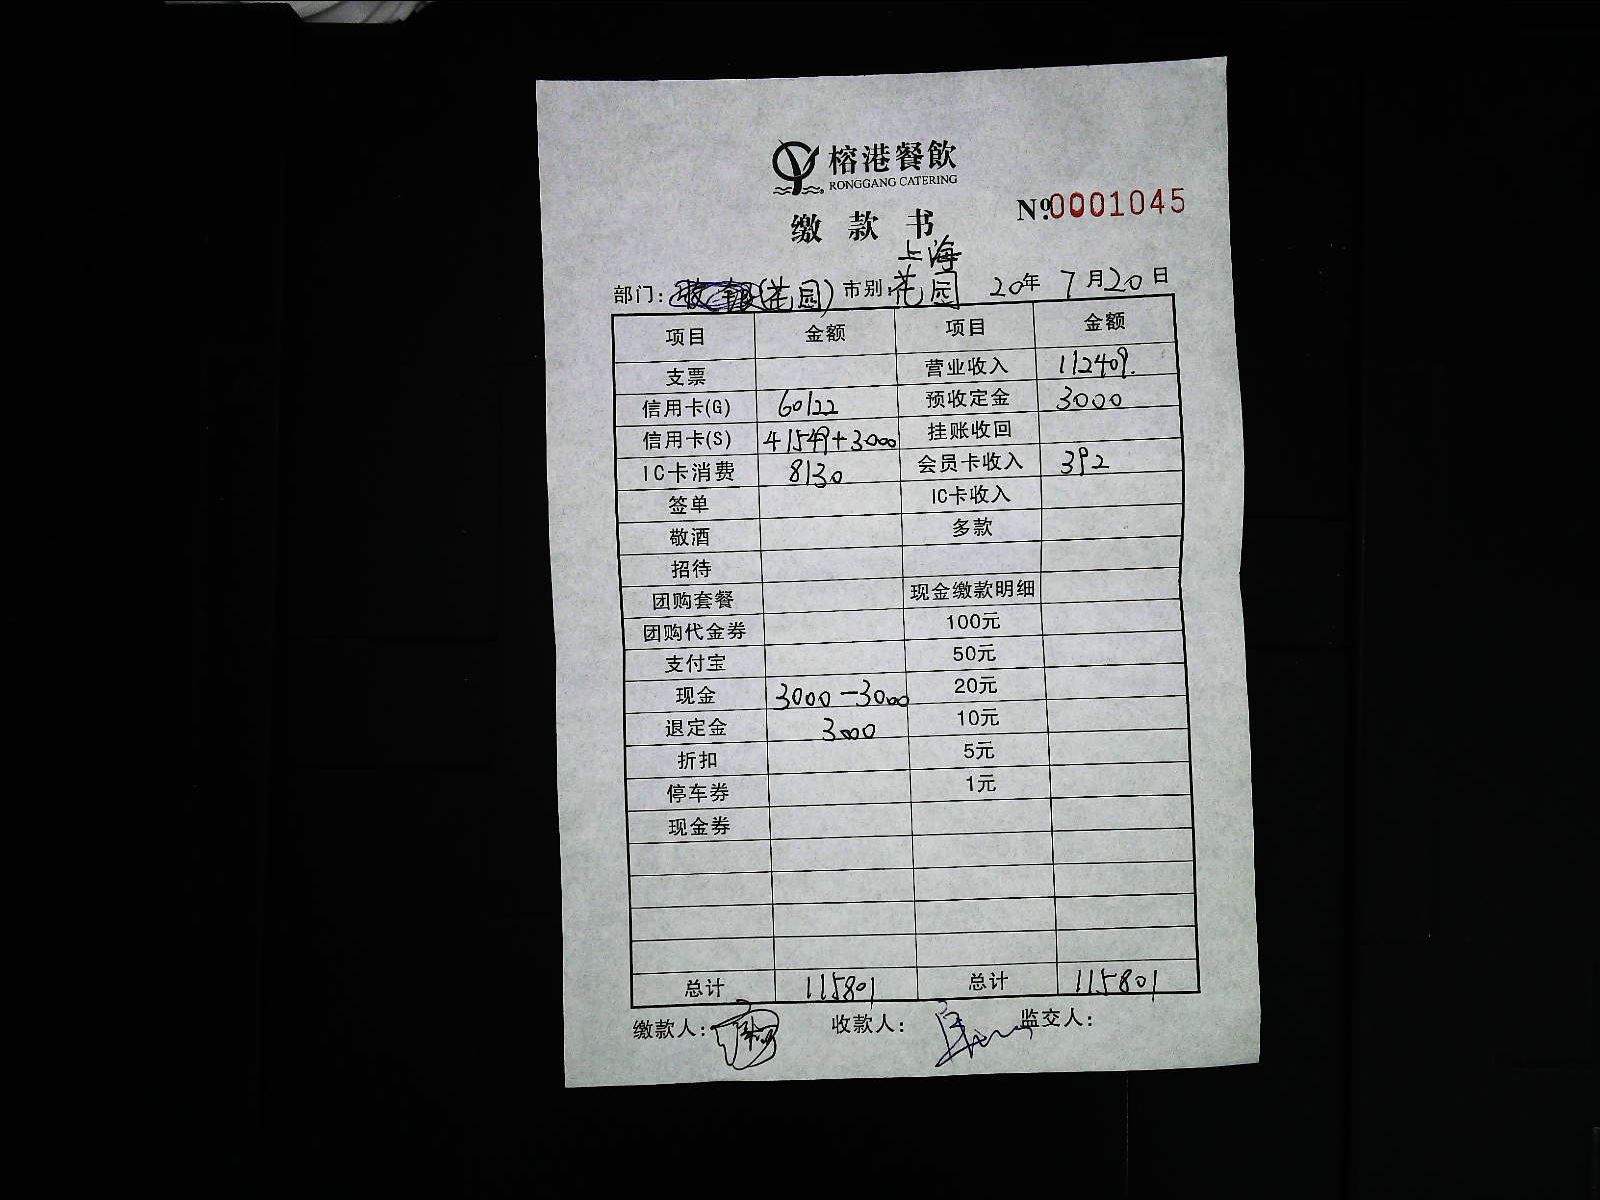 榕港餐飲
RONGGANG CATERING
№0001045
缴款书
上海
部门：(花园) 市别：花园 20年7月20日
项目 金额 项目 金额
支票 营业收入 112409.
信用卡(G) 60122 预收定金 3000
信用卡(S) 41549+3000 挂账收回
IC卡消费 8130 会员卡收入 392
签单 IC卡收入
敬酒 多款
招待
团购套餐 现金缴款明细
团购代金券 100元
支付宝 50元
现金 3000-3000 20元
退定金 3000 10元
折扣 5元
停车券 1元
现金券
总计 115801 总计 115801
缴款人： 收款人： 监交人：